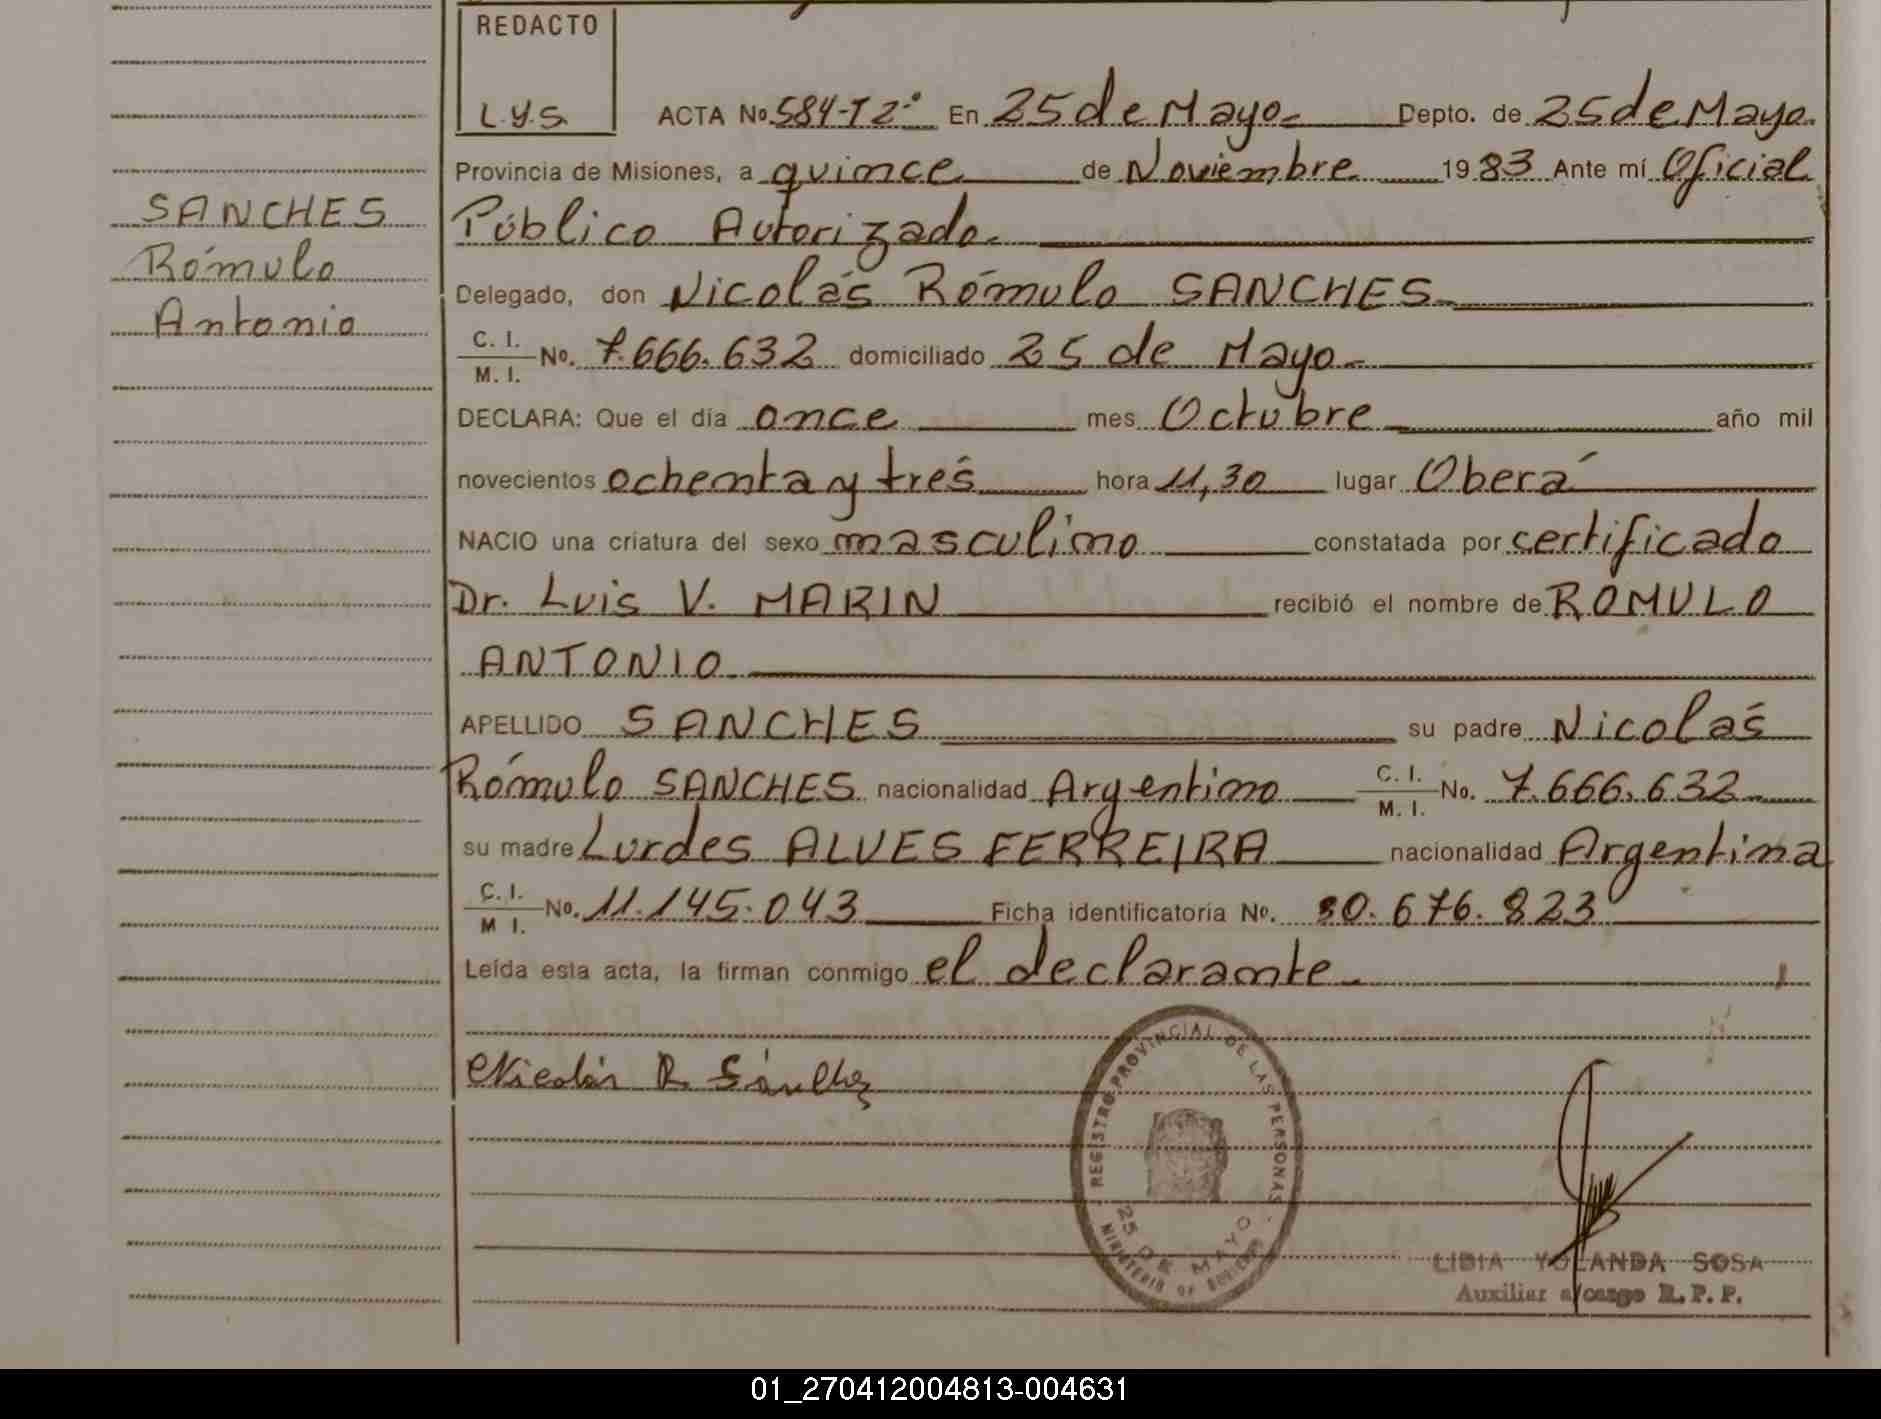 REDACTO
L.Y.S.
ACTA No. 584-T2° En 25 de Mayo.- Depto. de 25 de Mayo.
Provincia de Misiones, a quince de Noviembre 1983 Ante mí Oficial
Público Autorizado.-
Delegado, don Nicolás Rómulo SANCHES.-
C. I. / M. I. No. 7.666.632 domiciliado 25 de Mayo.-
DECLARA: Que el día once mes Octubre año mil
novecientos ochenta y tres hora 11,30 lugar Oberá
NACIO una criatura del sexo masculino constatada por certificado
Dr. Luis V. MARIN recibió el nombre de ROMULO
ANTONIO.
APELLIDO SANCHES su padre Nicolás
Rómulo SANCHES nacionalidad Argentino C. I. / M. I. No. 7.666.632
su madre Lurdes ALVES FERREIRA nacionalidad Argentina
C. I. / M I. No. 11.145.043 Ficha identificatoria No. 30.676.823
Leída esta acta, la firman conmigo el declarante.-
SANCHES
Rómulo
Antonio
Nicolás R. Sánchez
REGISTRO PROVINCIAL DE LAS PERSONAS
25 DE MAYO
MINISTERIO DE GOBIERNO
LIDIA YOLANDA SOSA
Auxiliar a/cargo R. P. P.
01_270412004813-004631